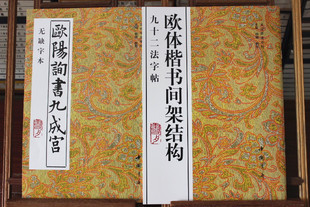 无缺字本
歐陽詢書九成宮
欧体楷书间架结构
九十二法字帖